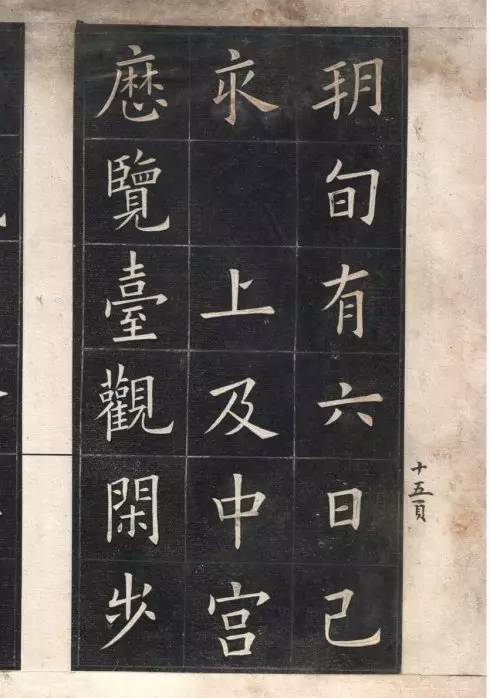 玥旬有六日己
永上及中宫
歷覽臺觀閑步
十五頁